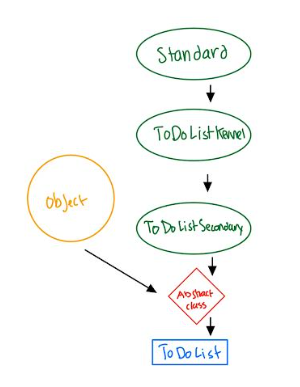 Standard
ToDoListKennel
Object
ToDoListSecondary
Abstract
class
ToDoList